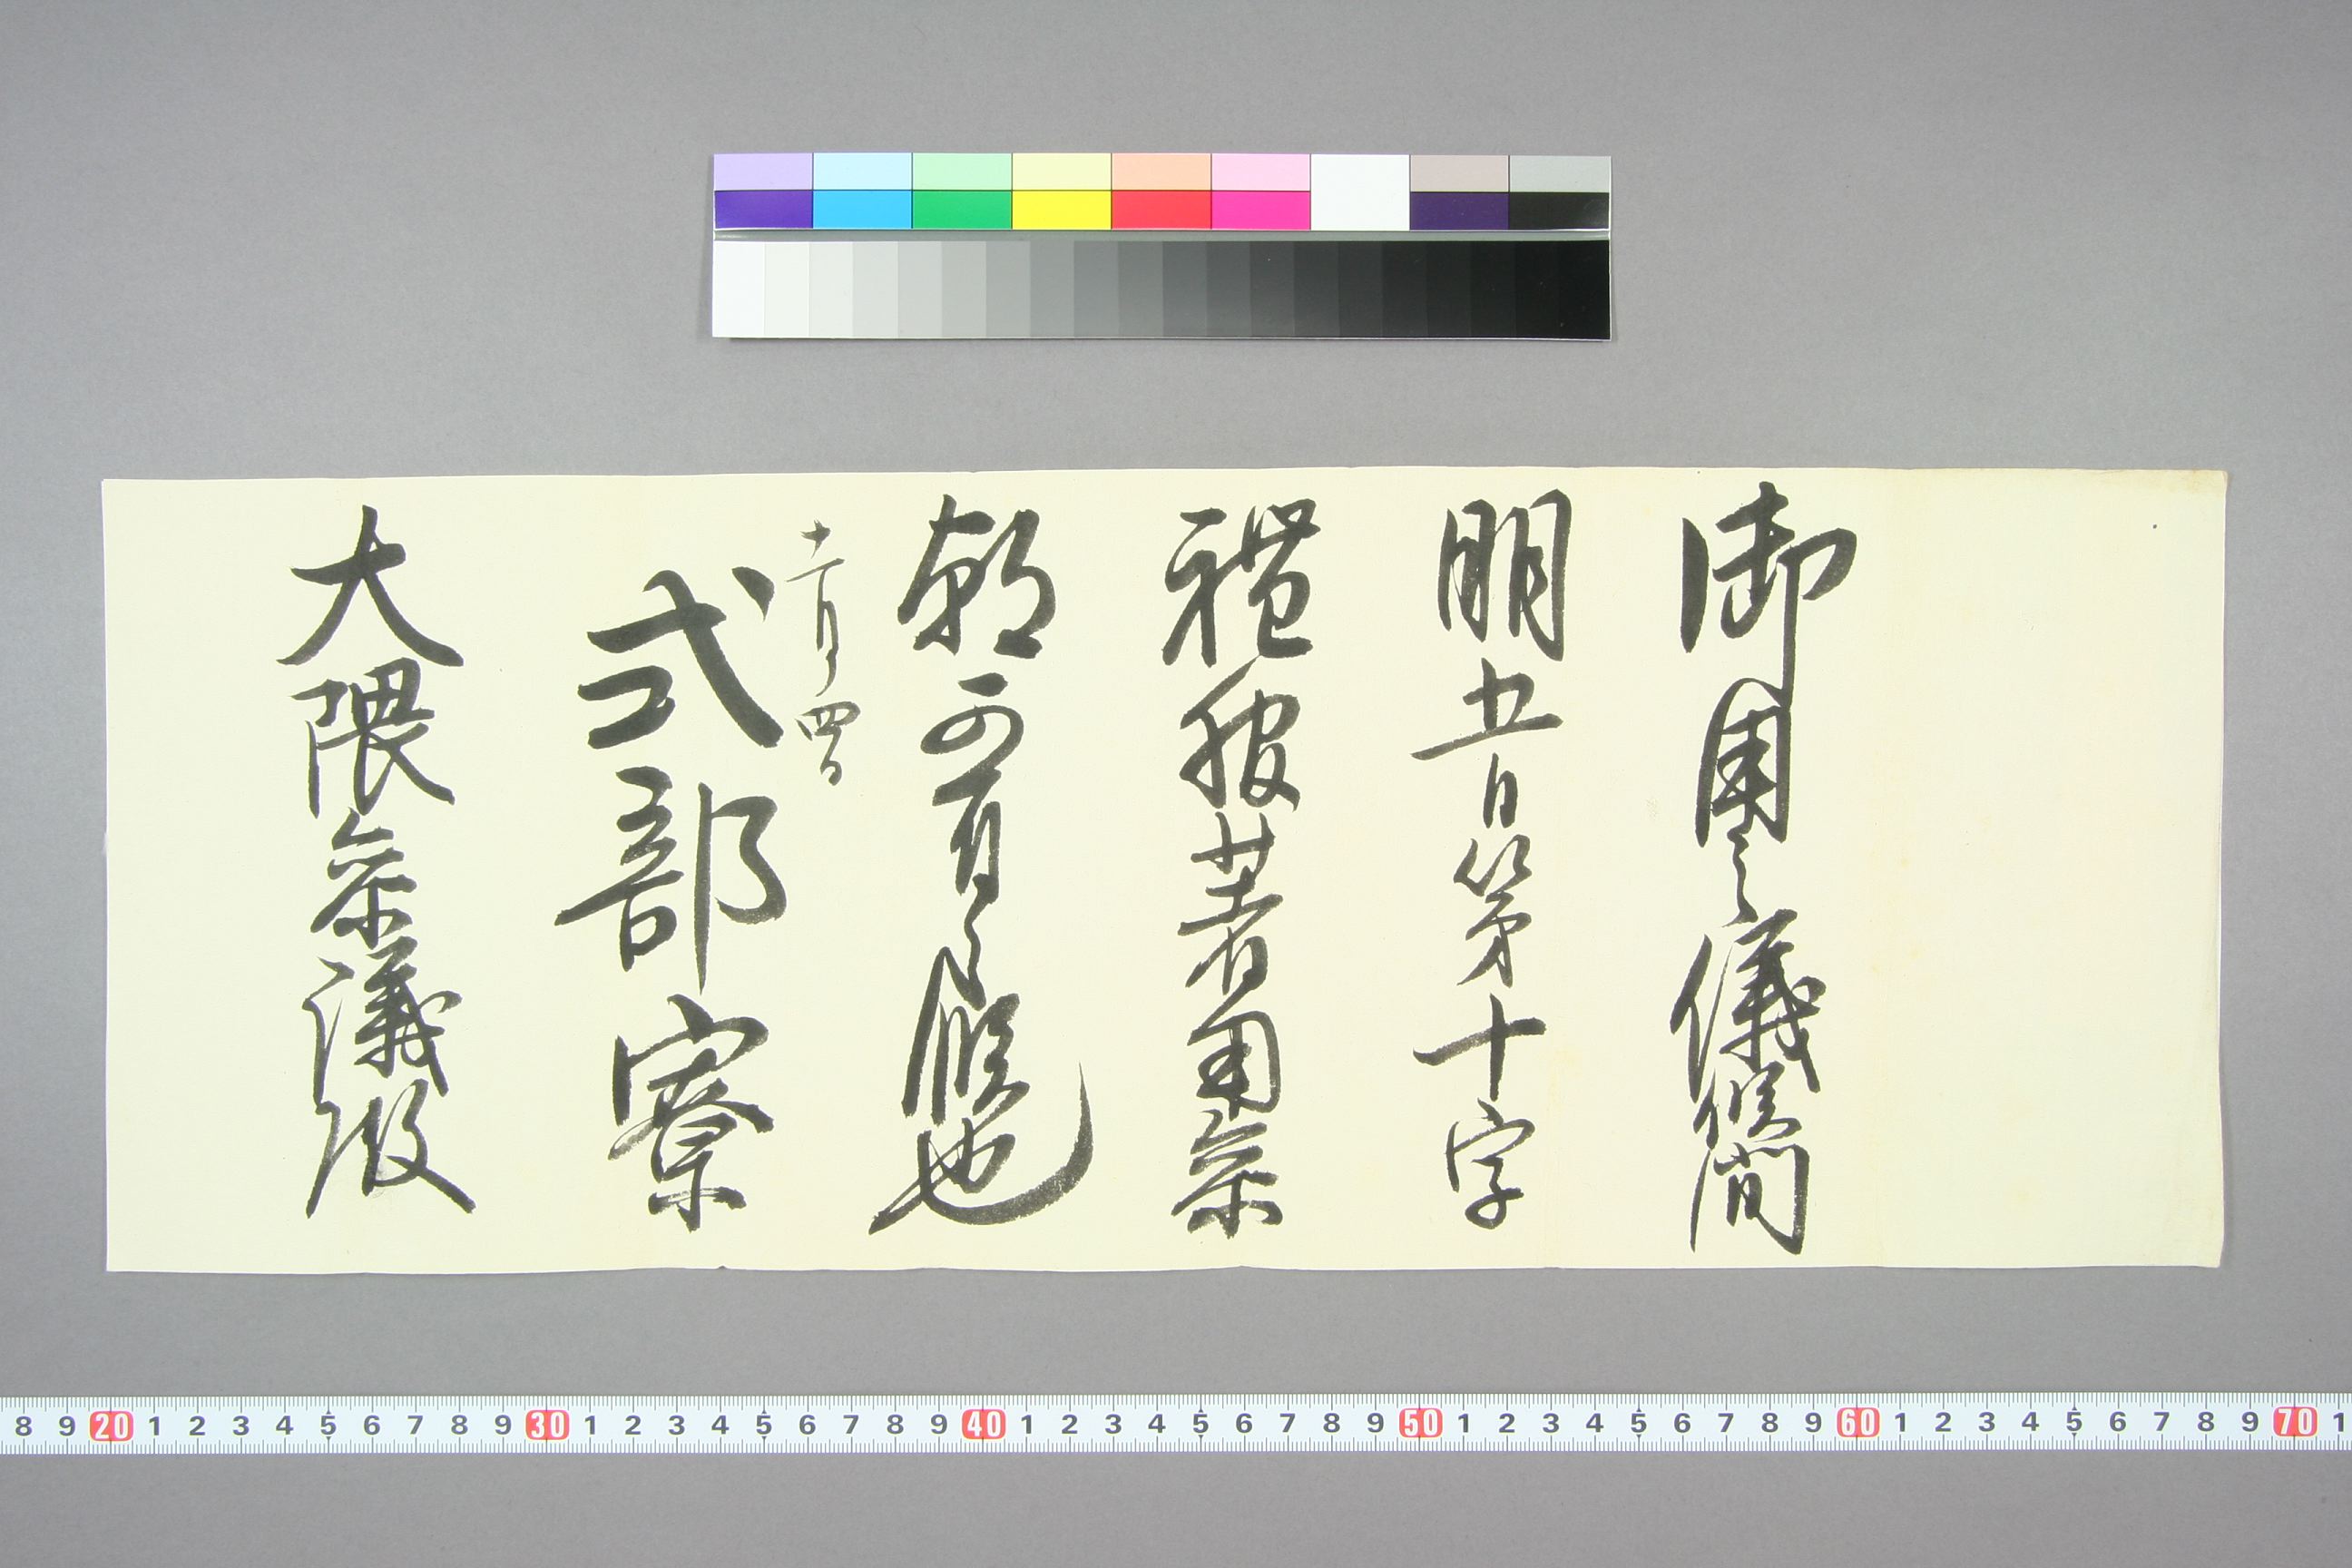 御用之儀候間
明五日第十字
禮服著用参
朝可有之候也
十一月四日
式部寮
大隈参議殿
8 9 20 1 2 3 4 5 6 7 8 9 30 1 2 3 4 5 6 7 8 9 40 1 2 3 4 5 6 7 8 9 50 1 2 3 4 5 6 7 8 9 60 1 2 3 4 5 6 7 8 9 70 1